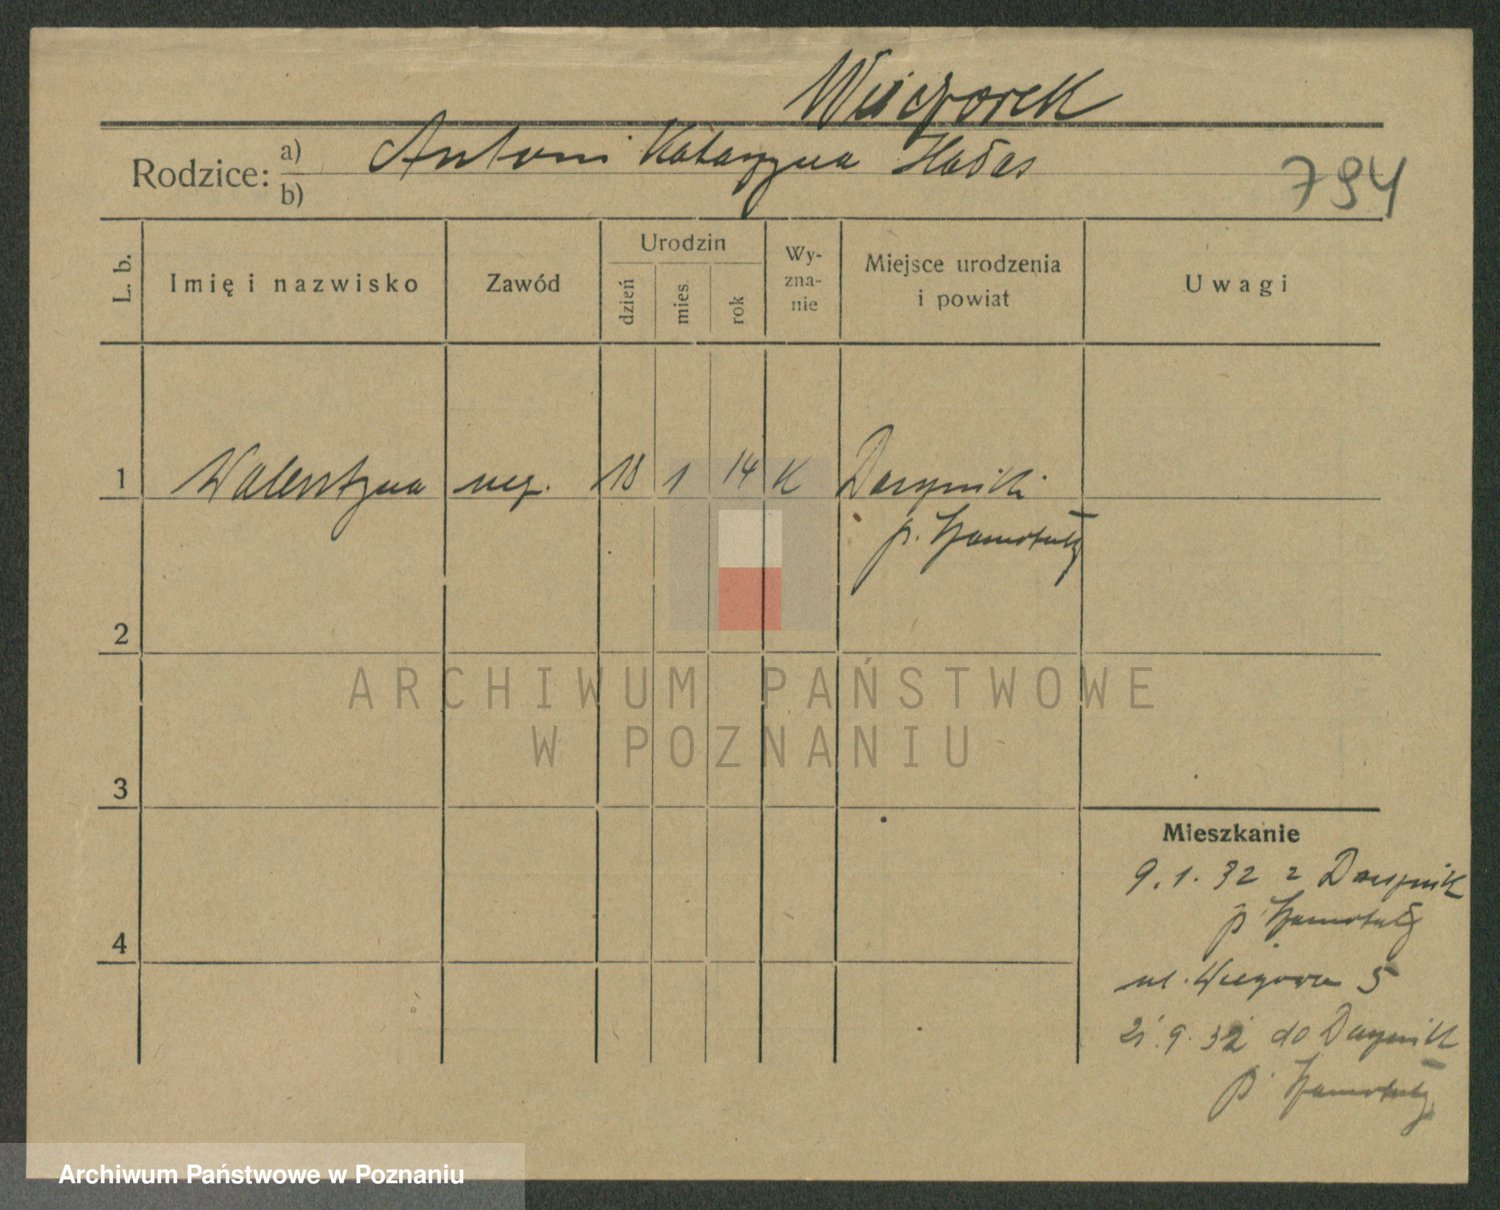 Wieczorek
Rodzice: a) b) Antoni Katarzyna Hałas
794
L. b.
Imię i nazwisko
Zawód
Urodzin
dzień
mies.
rok
Wy-
zna-
nie
Miejsce urodzenia
i powiat
Uwagi
1 Walentyna 18 1 14 K
p. Szamotuły
2
3
4
Mieszkanie
9.1.32 z
p Szamotuły
ul. 5
21.9.32 do
p Szamotuły
ARCHIWUM PAŃSTWOWE
W POZNANIU
Archiwum Państwowe w Poznaniu